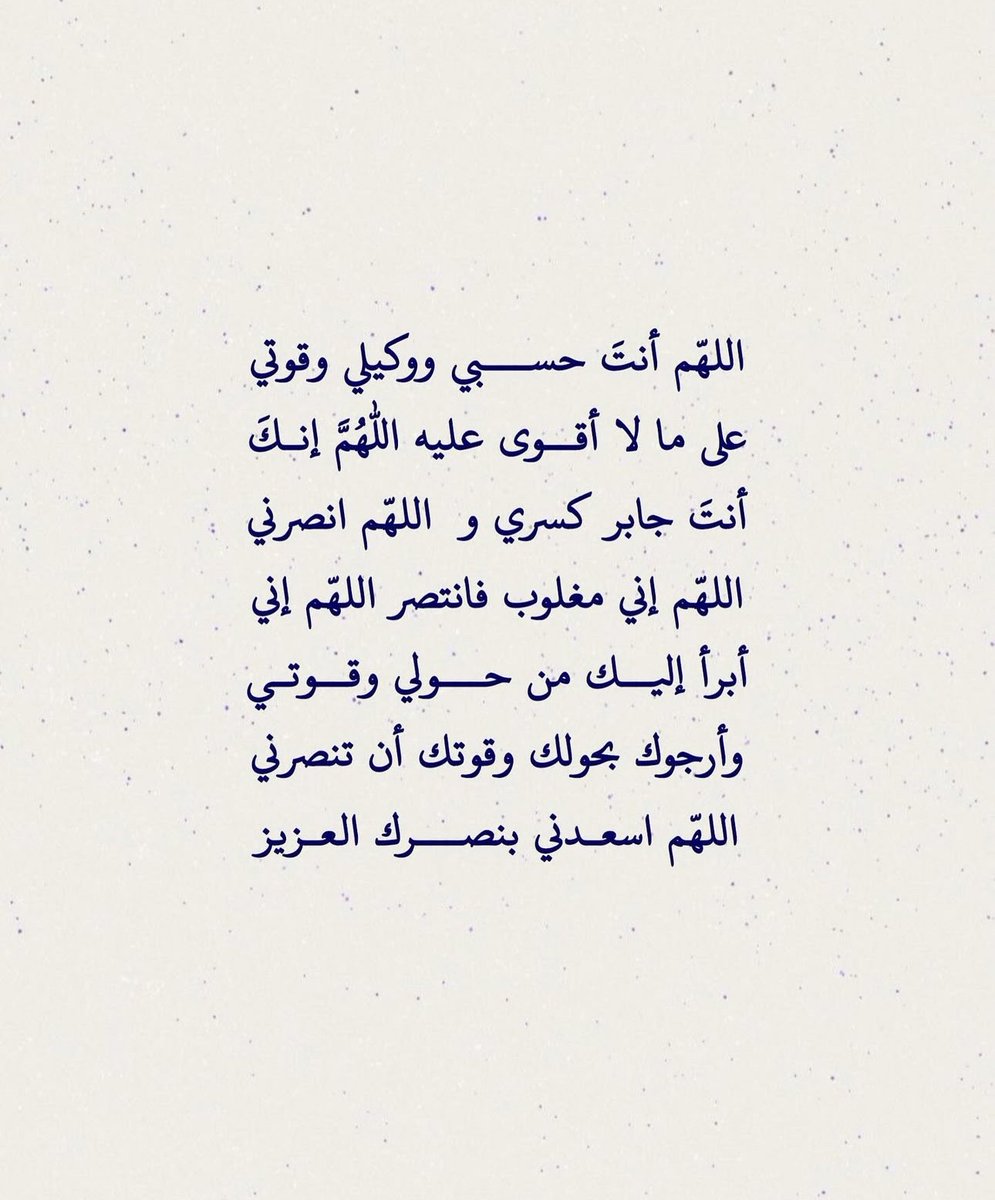 اللهّم أنتَ حســـبي ووكيلي وقوتي
على ما لا أقــوى عليه اللّٰهُمَّ إنـكَ
أنتَ جابر كسري و اللهّم انصرني
اللهّم إني مغلوب فانتصر اللهّم إني
أبرأ إليــك من حـــولي وقــوتـي
وأرجوك بحولك وقوتك أن تنصرني
اللهّم اسعـدني بنصـــرك العـزيز